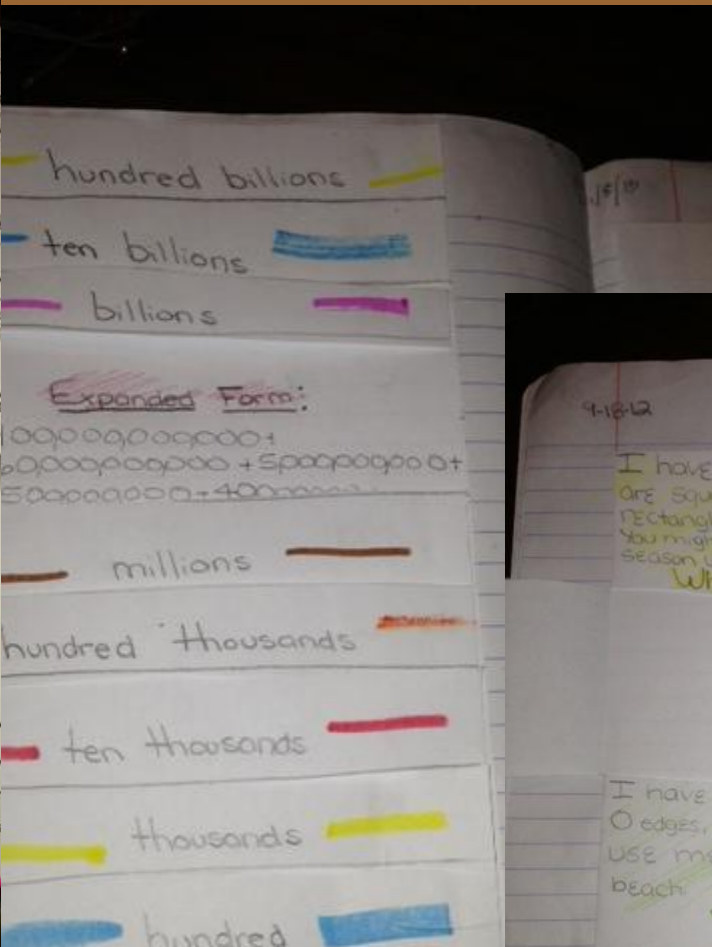 hundred billions
ten billions
billions
Expanded Form:
00,000,000,000+
60,000,000,000 +5,000,000,000+
500,000,000+400
millions
hundred thousands
ten thousands
thousands
hundred
9-18-12
I have
are
You
season
I have
0 edges,
use
beach.